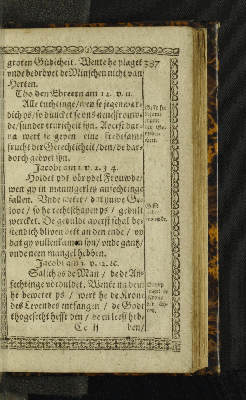 groten Güdicheit. Wente he plaget
387
vnde bedrövet de Minschen nicht van
Herten.
Tho den Ebreern am 12. v. 11.
Alle tuchtinge / wen se jegenwar-
dich ys / so düncket se vns nene frouw-
de / sunder truricheit syn. Averst dar-
na wert se geven eine fredesame
frucht der Gerechticheit / den / de dar-
dorch geövet syn.
Jacobi am 1. v. 2. 3. 4.
Holdet ydt vör ydel Frouwde /
wen gy in mannigerley anfechtinge
fallen. Vnde wetet / dat juwe Ge-
love / so he rechtschapen ys / gedult
wercket. De gedult averst schal be-
stendich bliven beth an den ende / vp
dat gy vullenkamen syn / vnde gantz /
vnde neen mangel hebben.
Jacobi am 1. v. 12. &c.
Salich ys de Man / de de An-
fechtinge vorduldet. Wente na dem
he beweret ys / wert he de Krone
des Levendes entfangen / de Godt
thogesecht hefft den / de en leeff heb-
Cc ij
ben /